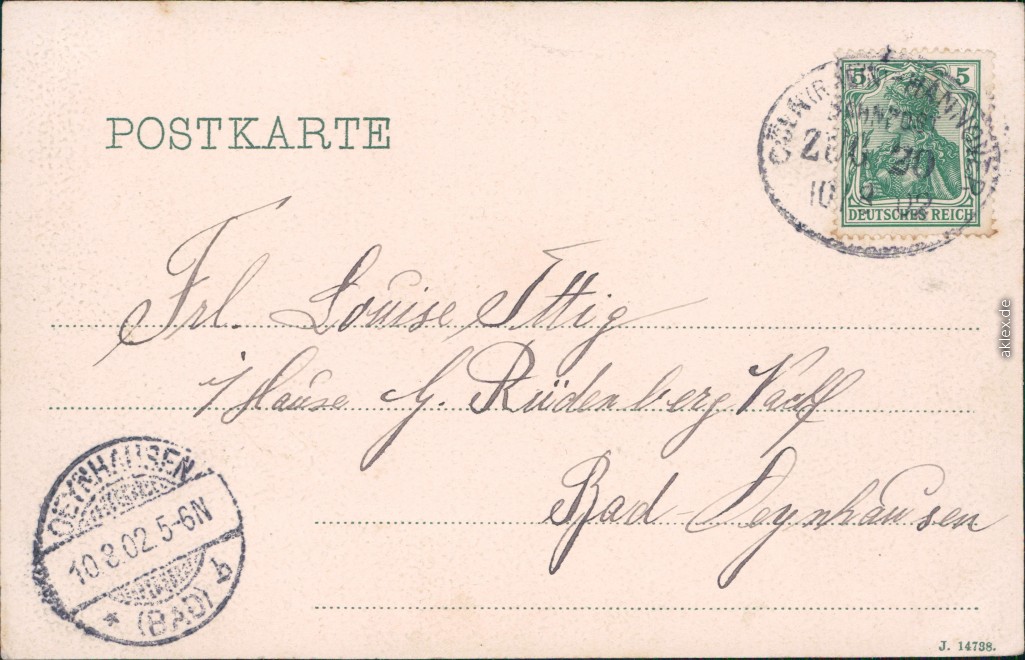 POSTKARTE
5 5
CÖLN (RHEIN) - HANNOVER
BAHNPOST
ZUG 20
10 8 02
DEUTSCHES REICH
Frl. Louise Ittig
i/Hause G. Rüdenberg
Bad-Oeynhausen
OEYNHAUSEN
10.8.02.5-6N
* (BAD)
J. 14738.
aklex.de